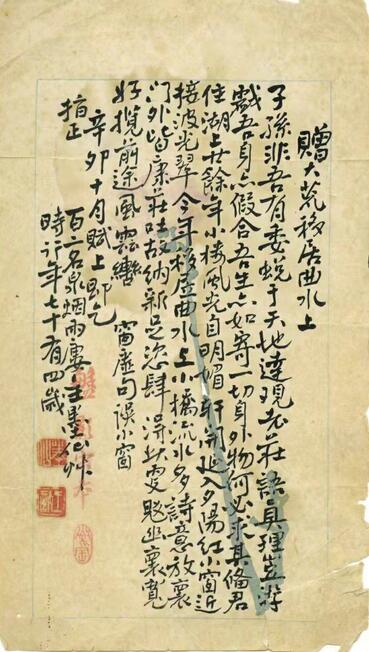 贈大荒移居曲水上
子孫非吾有委蛻于天地達觀老莊語真理豈游
戲吾身亦假合吾生亦如寄一切身外物何必求其備君
住湖上廿餘年小樓風光自明媚軒開延入夕陽紅小窗近
接波光翠今年移居曲水上小橋流水多詩意放褱
門外皆康莊吐故納新足恣肆
好攬前途風雲轡 窗虛句誤小窗
辛卯十月賦上即乞
指正
百二名泉烟雨裏王墨仙艸
時行年七十有四歲